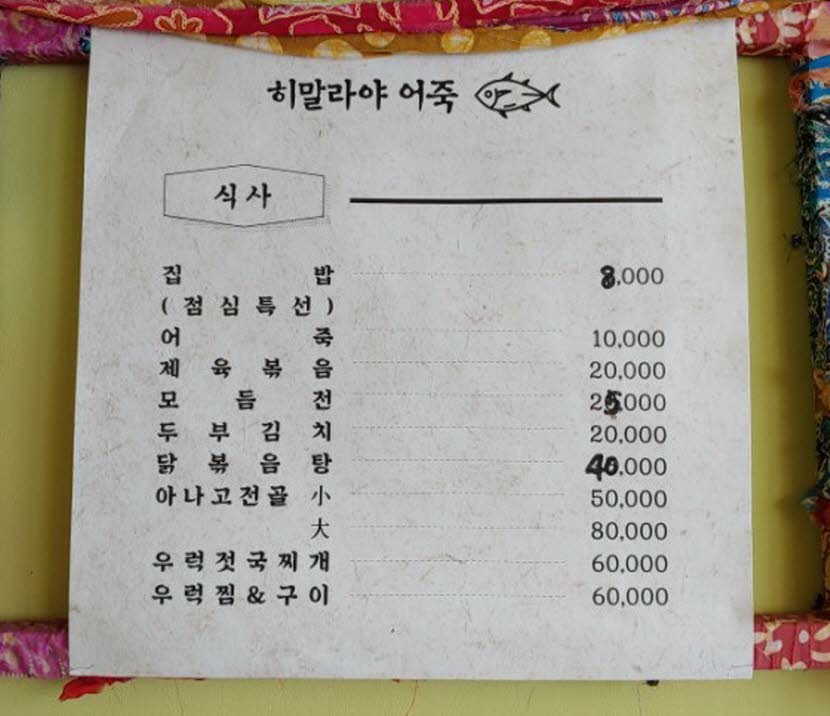 히말라야 어죽
식사
집밥 8,000
(점심특선)
어죽 10,000
제육볶음 20,000
모듬전 25,000
두부김치 20,000
닭볶음탕 40,000
아나고전골 小 50,000
大 80,000
우럭젓국찌개 60,000
우럭찜&구이 60,000